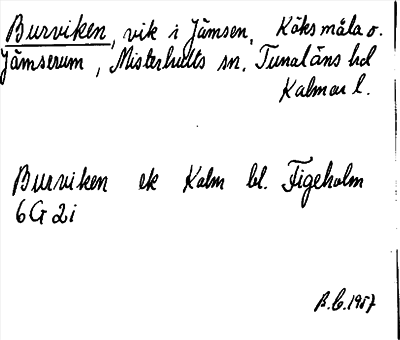 Burviken, vik i Jämsen, Kåksmåla o.
Jämserum, Misterhults sn, Tunaläns hd
Kalmar l.
Burviken ek Kalm bl. Figeholm
6G 2i
B.C. 1957